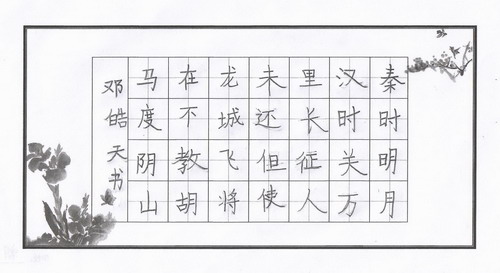 秦时明月
汉时关万
里长征人
未还但使
龙城飞将
在不教胡
马度阴山
邓皓天书